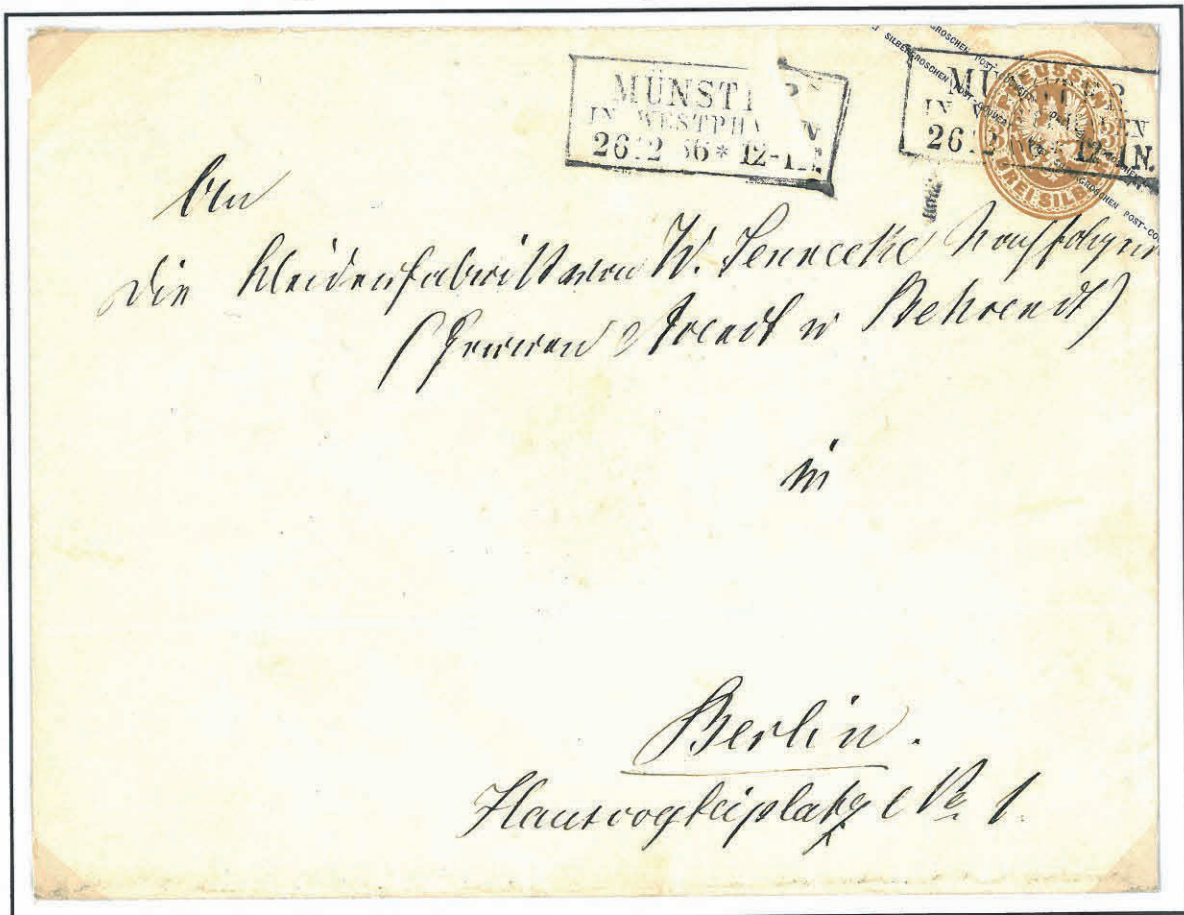 MÜNST
IN WESTPHA EN
26 12 66 * 12-1 N.
MÜ
IN W EN
26 12 12-1 N.
PREUSSEN
DREI SILB
3 3
SILBERGROSCHEN POST-COUV
GROSCHEN POST-CO
An
die Kleiderfabrik von W. Jennecke Nachfolger
(Herren Arendt u Behrendt)
in
Berlin.
Hausvogteiplatz No. 1.